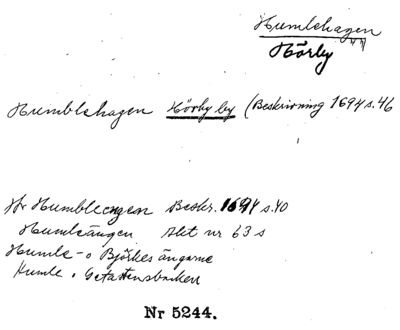 Humlehagen
Hörby
Humblehagen Hörby by (Beskrivning 1694 s. 46
Humblengen Beskr. 1694 s. 40
Humleängen Akt nr 63 s
Humle- o Björkes ängarne
Humle o
Nr 5244.